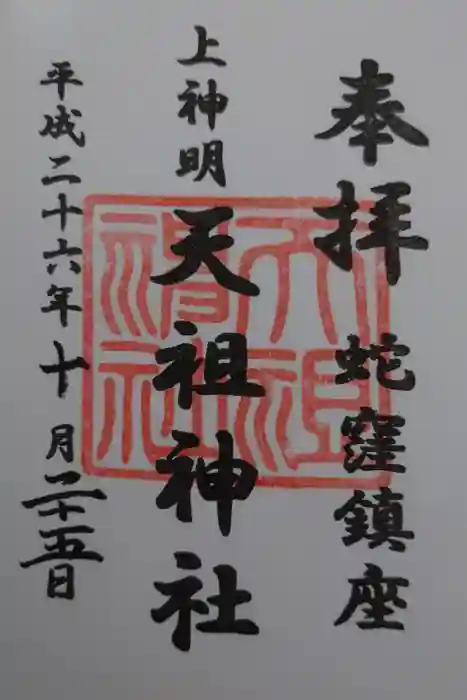 奉拝 蛇窪鎮座
上神明 天祖神社
平成二十六年十月二十五日